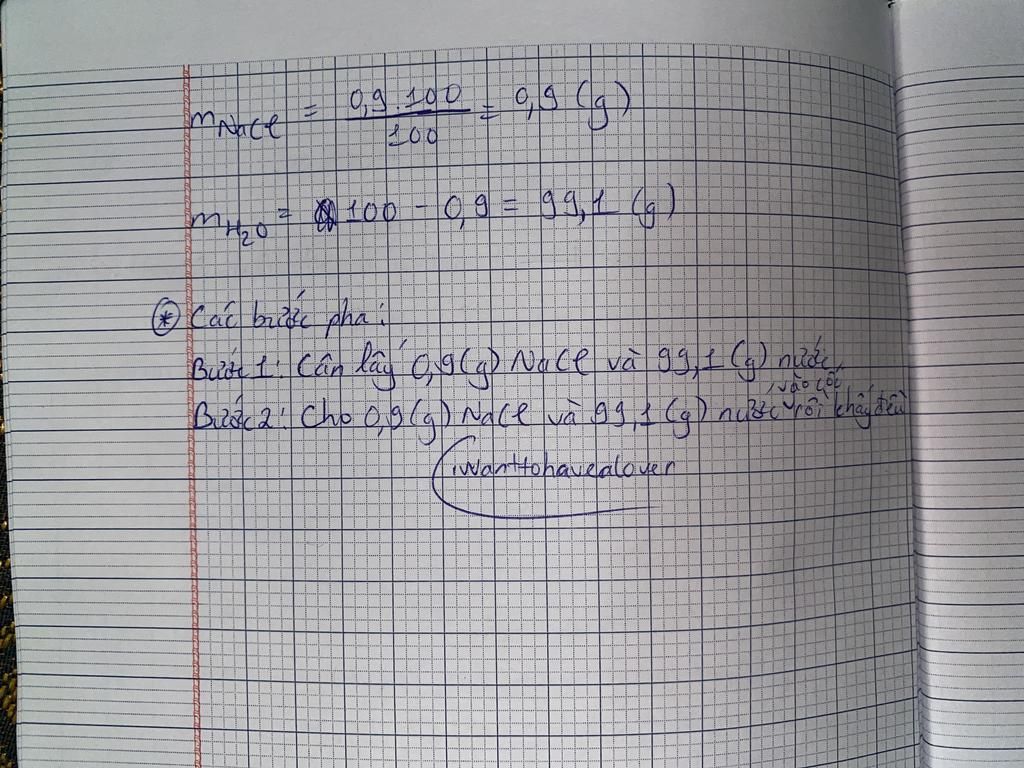 mNaCl = 0,9.100 / 100 = 0,9 (g)
mH₂O = 100 - 0,9 = 99,1 (g)
* Các bước pha:
Bước 1: Cân lấy 0,9(g) NaCl và 99,1 (g) nước.
Bước 2: Cho 0,9(g) NaCl và 99,1(g) nước vào cốc, rồi khấy đều
iwanttohavealover